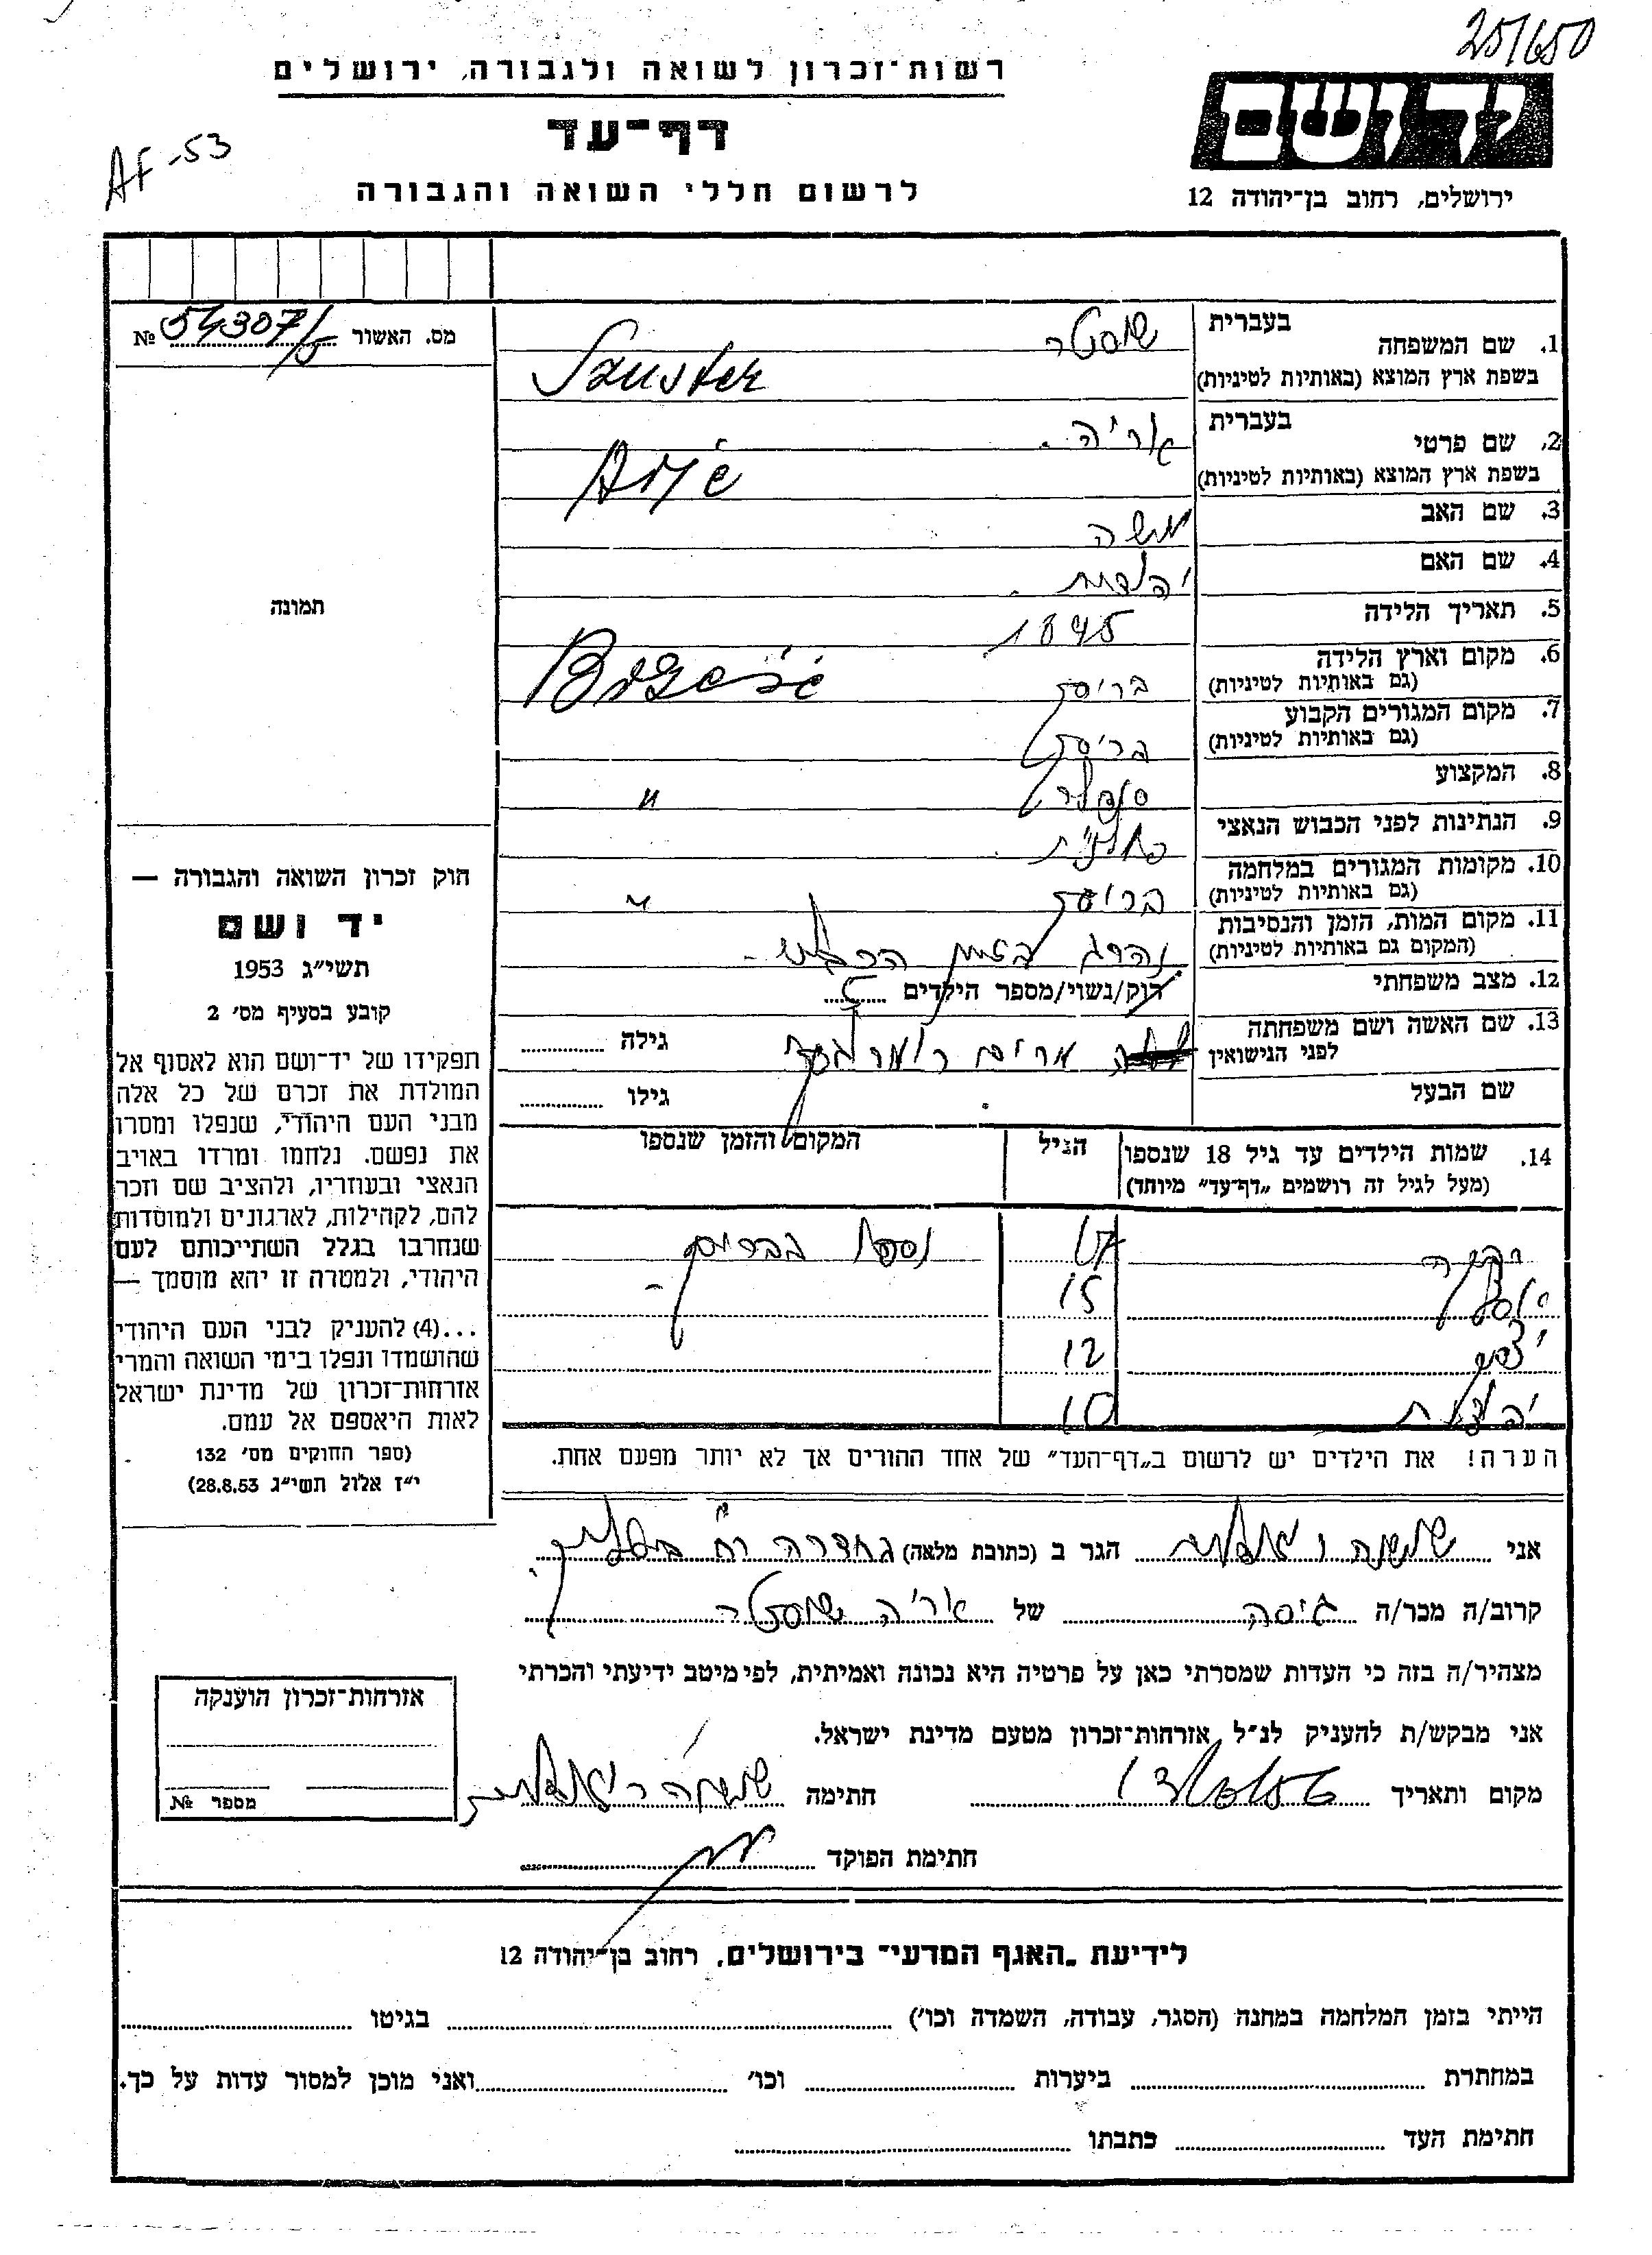 25/650
רשות־זכרון לשואה ולגבורה, ירושלים
דף־עד
AF-53
לרשום חללי השואה והגבורה
יד ושם
ירושלים, רחוב בן־יהודה 12
מס. האשור № 54307/5
1. שם המשפחה בעברית שוסטר
בשפת ארץ המוצא (באותיות לטיניות) Szuster
2. שם פרטי בעברית אריה
בשפת ארץ המוצא (באותיות לטיניות) Arje
3. שם האב משה
4. שם האם יהודית
5. תאריך הלידה 1895
6. מקום וארץ הלידה בריסק Brześć
(גם באותיות לטיניות)
7. מקום המגורים הקבוע בריסק
(גם באותיות לטיניות)
8. המקצוע "
9. הנתינות לפני הכבוש הנאצי פולנית
10. מקומות המגורים במלחמה בריסק "
(גם באותיות לטיניות)
11. מקום המות, הזמן והנסיבות נהרג בזמן
(המקום גם באותיות לטיניות)
12. מצב משפחתי רוק/נשוי/מספר הילדים 5
13. שם האשה ושם משפחתה מרים גילה
לפני הנישואין
שם הבעל גילו
14. שמות הילדים עד גיל 18 שנספו הגיל המקום והזמן שנספו
(מעל לגיל זה רושמים „דף־עד” מיוחד)
17 נספה בבריסק
15
יצחק 12
10
הערה! את הילדים יש לרשום ב„דף־העד” של אחד ההורים אך לא יותר מפעם אחת.
תמונה
חוק זכרון השואה והגבורה —
יד ושם
תשי״ג 1953
קובע בסעיף מס׳ 2
תפקידו של יד־ושם הוא לאסוף אל
המולדת את זכרם של כל אלה
מבני העם היהודי, שנפלו ומסרו
את נפשם. נלחמו ומרדו באויב
הנאצי ובעוזריו, ולהציב שם וזכר
להם, לקהילות, לארגונים ולמוסדות
שנחרבו בגלל השתייכותם לעם
היהודי, ולמטרה זו יהא מוסמך —
...(4) להעניק לבני העם היהודי
שהושמדו ונפלו בימי השואה והמרי
אזרחות־זכרון של מדינת ישראל
לאות היאספם אל עמם.
(ספר החוקים מס׳ 132
י״ז אלול תשי״ג 28.8.53)
אני שושנה הגר ב (כתובת מלאה) בחדרה רח'
קרוב/ה מכר/ה גיסה של אריה שוסטר
מצהיר/ה בזה כי העדות שמסרתי כאן על פרטיה היא נכונה ואמיתית, לפי מיטב ידיעתי והכרתי
אני מבקש/ת להעניק לנ״ל אזרחות־זכרון מטעם מדינת ישראל.
מקום ותאריך חתימה שושנה
חתימת הפוקד
אזרחות־זכרון הוענקה
מספר №
לידיעת „האגף המדעי” בירושלים, רחוב בן־יהודה 12
הייתי בזמן המלחמה במחנה (הסגר, עבודה, השמדה וכו׳) בגיטו
במחתרת ביערות וכו׳ ואני מוכן למסור עדות על כך.
חתימת העד כתבתו